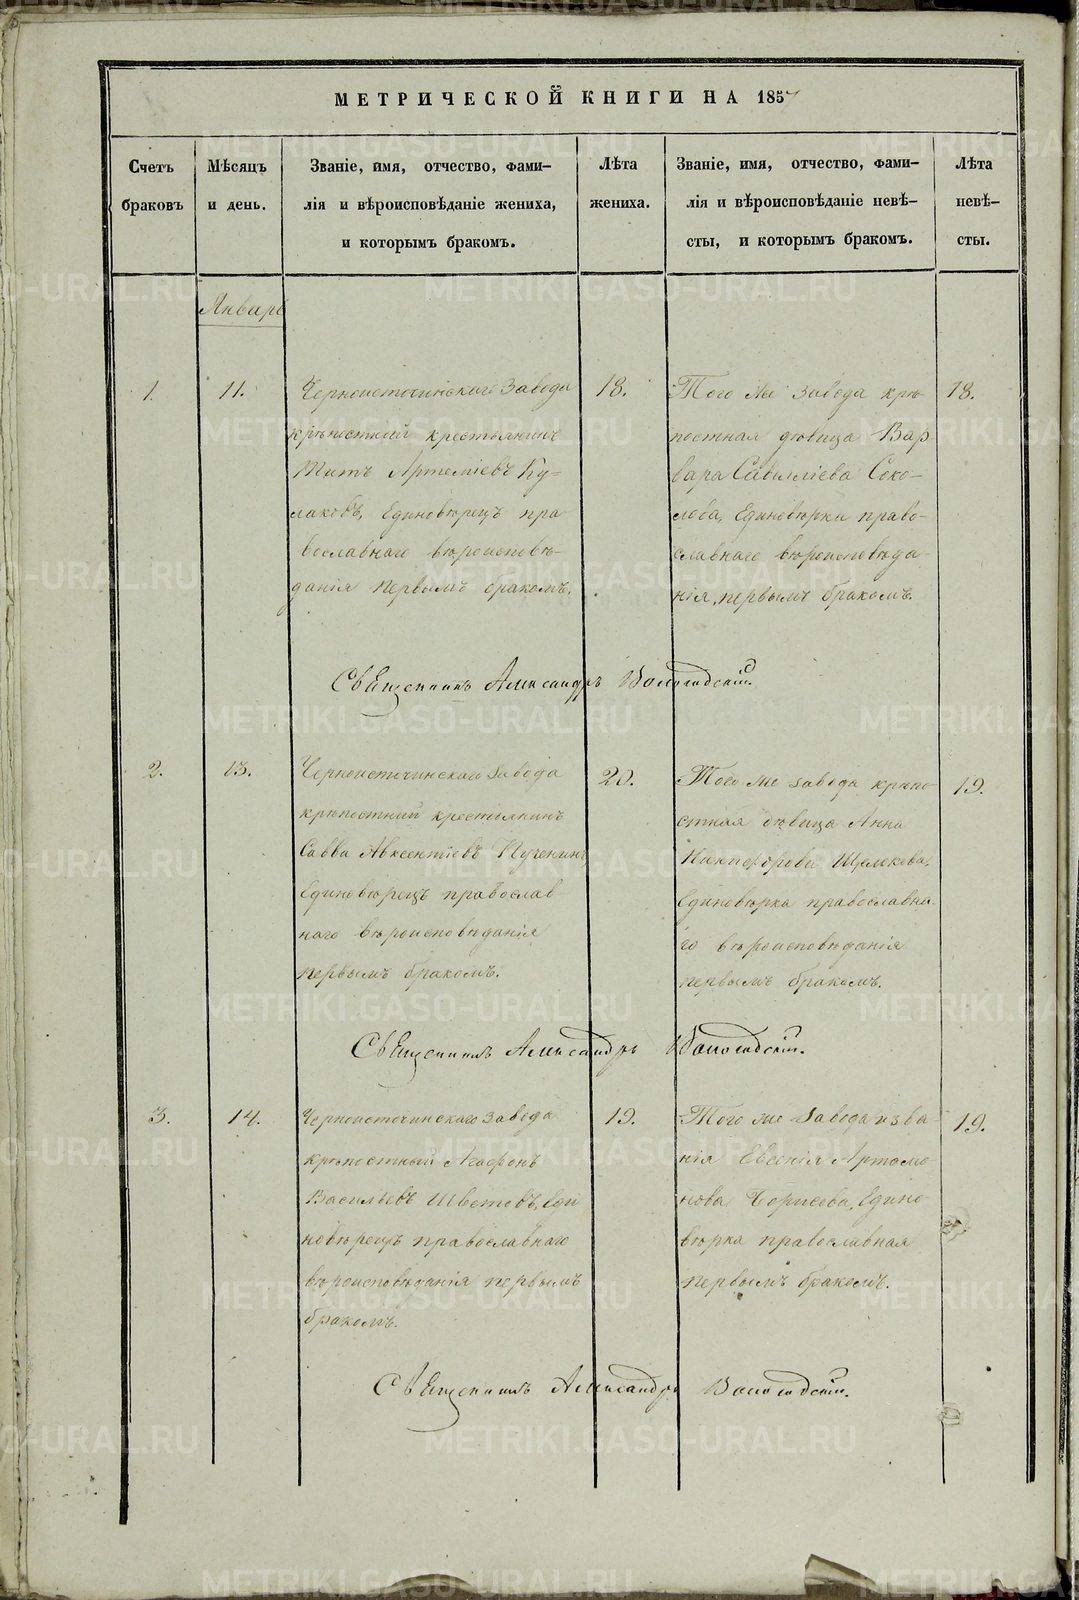 МЕТРИЧЕСКОЙ КНИГИ НА 1857
Счетъ
браковъ
Мѣсяцъ
и день.
Званіе, имя, отчество, фами–
лія и вѣроисповѣданіе жениха,
и которымъ бракомъ.
Лѣта
жениха.
Званіе, имя, отчество, фами–
лія и вѣроисповѣданіе невѣ–
сты, и которымъ бракомъ.
Лѣта
невѣ–
сты.
Январь
1.
11.
Черноисточинскаго завода
крѣпостный крестьянинъ
Титъ Артеміевъ Ку–
лаковъ, Единовѣрецъ пра
вославнаго вѣроисповѣ–
данія первымъ бракомъ.
18.
Того же завода крѣ
постная дѣвица Вар
вара Савиліева Соко–
лова, Единовѣрка право–
славнаго вѣроисповѣда
нія, первымъ бракомъ.
18.
Священникъ Александръ Вологодскій.
2.
13.
Черноисточинскаго завода
крѣпостный крестьянинъ
Савва Авксентіевъ
Единовѣрецъ православ
наго вѣроисповѣданія
первымъ бракомъ.
20.
Того же завода крѣпо
стная дѣвица Анна
Никифорова
Единовѣрка православна
го вѣроисповѣданія
первымъ бракомъ.
19.
Священникъ Александръ Вологодскій.
3.
14.
Черноисточинскаго завода
крѣпостный Агафонъ
Васильевъ Цветовъ, Еди
новѣрецъ православнаго
вѣроисповѣданія первымъ
бракомъ.
19.
Того же завода и зва
нія Евгенія Артамо
нова Борисова, Едино
вѣрка православная
первымъ бракомъ.
19.
Священникъ Александръ Вологодскій.
METRIKI.GASO-URAL.RU